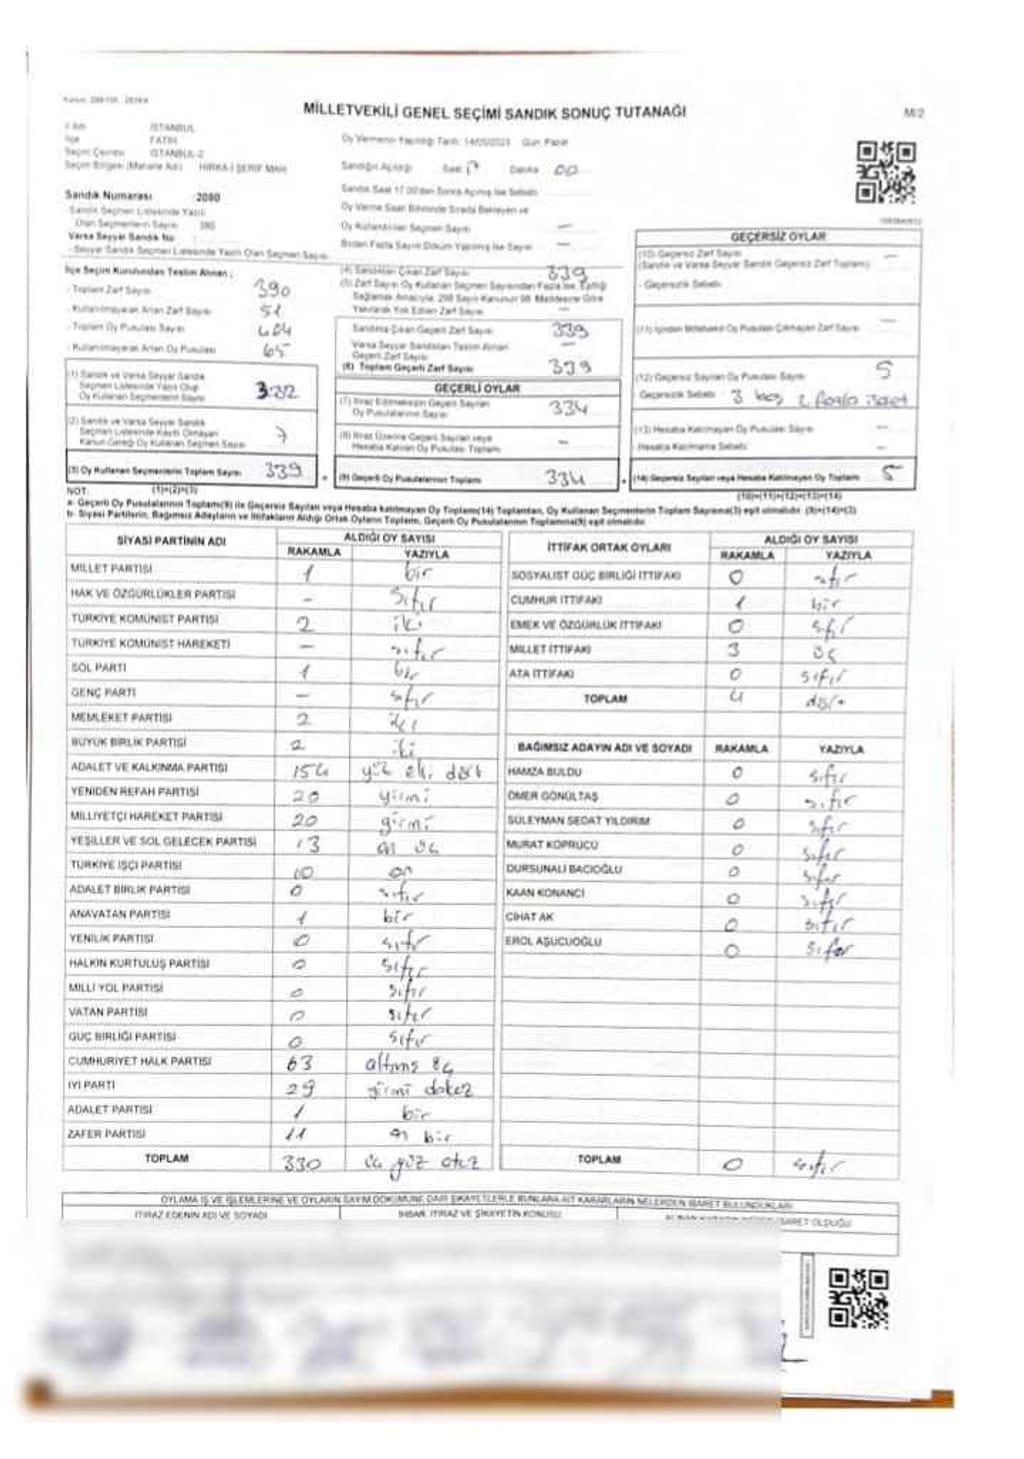 MİLLETVEKİLİ GENEL SEÇİMİ SANDIK SONUÇ TUTANAĞI
M/2
İSTANBUL
FATİH
İSTANBUL-2
HIRKA-İ ŞERİF MAH
Oy Vermenin Yapıldığı Tarih: 14/05/2023 Gün: Pazar
Sandığın Açıldığı Saat 17 Dakika 00
Sandık Numarası :2080
- Sandık Seçmen Listesinde Yazılı
Olan Seçmenlerin Sayısı 390
Varsa Seyyar Sandık No
- Seyyar Sandık Seçmen Listesinde Yazılı Olan Seçmen Sayısı
Sandık Saat 17.00'den Sonra Açılmış İse Sebebi
Oy Verme Saati Bitiminde Sırada Bekleyen ve
Oy Kullandırılan Seçmen Sayısı —
Birden Fazla Sayım Döküm Yapılmış İse Sayısı —
İlçe Seçim Kurulundan Teslim Alınan ;
- Toplam Zarf Sayısı 390
- Kullanılmayarak Artan Zarf Sayısı 51
- Toplam Oy Pusulası Sayısı 404
- Kullanılmayarak Artan Oy Pusulası 65
(1) Sandık ve Varsa Seyyar Sandık
Seçmen Listesinde Yazılı Olup
Oy Kullanan Seçmenlerin Sayısı 332
(2) Sandık ve Varsa Seyyar Sandık
Seçmen Listesinde Kayıtlı Olmayan
Kanun Gereği Oy Kullanan Seçmen Sayısı 7
(3) Oy Kullanan Seçmenlerin Toplam Sayısı 339
(1)+(2)=(3)
(4) Sandıktan Çıkan Zarf Sayısı 339
(5) Zarf Sayısı Oy Kullanan Seçmen Sayısından Fazla İse, Eşitliği
Sağlamak Amacıyla, 298 Sayılı Kanunun 98. Maddesine Göre
Yakılarak Yok Edilen Zarf Sayısı —
Sandıktan Çıkan Geçerli Zarf Sayısı 339
Varsa Seyyar Sandıktan Teslim Alınan
Geçerli Zarf Sayısı —
(6) Toplam Geçerli Zarf Sayısı 339
GEÇERLİ OYLAR
(7) İtiraz Edilmeksizin Geçerli Sayılan
Oy Pusulalarının Sayısı 334
(8) İtiraz Üzerine Geçerli Sayılan veya
Hesaba Katılan Oy Pusulası Toplamı —
(9) Geçerli Oy Pusulalarının Toplamı 334
GEÇERSİZ OYLAR
(10) Geçersiz Zarf Sayısı —
(Sandık ve Varsa Seyyar Sandık Geçersiz Zarf Toplamı)
- Geçersizlik Sebebi
(11) İçinden Milletvekili Oy Pusulası Çıkmayan Zarf Sayısı —
(12) Geçersiz Sayılan Oy Pusulası Sayısı 5
Geçersizlik Sebebi 3 boş 2 fazla işaret
(13) Hesaba Katılmayan Oy Pusulası Sayısı —
Hesaba Katılmama Sebebi —
(14) Geçersiz Sayılan veya Hesaba Katılmayan Oy Toplamı 5
(10)+(11)+(12)+(13)=(14)
NOT:
a- Geçerli Oy Pusulalarının Toplamı(9) ile Geçersiz Sayılan veya Hesaba katılmayan Oy Toplamı(14) Toplamları, Oy Kullanan Seçmenlerin Toplam Sayısına(3) eşit olmalıdır. (9)+(14)=(3)
b- Siyasi Partilerin, Bağımsız Adayların ve İttifakların Aldığı Ortak Oyların Toplamı, Geçerli Oy Pusulalarının Toplamına(9) eşit olmalıdır.
SİYASİ PARTİNİN ADI ALDIĞI OY SAYISI
RAKAMLA YAZIYLA
MİLLET PARTİSİ 1 bir
HAK VE ÖZGÜRLÜKLER PARTİSİ - Sıfır
TÜRKİYE KOMÜNİST PARTİSİ 2 iki
TÜRKİYE KOMÜNİST HAREKETİ - sıfır
SOL PARTİ 1 bir
GENÇ PARTİ - sıfır
MEMLEKET PARTİSİ 2 iki
BÜYÜK BİRLİK PARTİSİ 2 iki
ADALET VE KALKINMA PARTİSİ 154 yüz elli dört
YENİDEN REFAH PARTİSİ 20 yirmi
MİLLİYETÇİ HAREKET PARTİSİ 20 yirmi
YEŞİLLER VE SOL GELECEK PARTİSİ 13 on üç
TÜRKİYE İŞÇİ PARTİSİ 10 on
ADALET BİRLİK PARTİSİ 0 sıfır
ANAVATAN PARTİSİ 1 bir
YENİLİK PARTİSİ 0 sıfır
HALKIN KURTULUŞ PARTİSİ 0 sıfır
MİLLİ YOL PARTİSİ 0 sıfır
VATAN PARTİSİ 0 sıfır
GÜÇ BİRLİĞİ PARTİSİ 0 sıfır
CUMHURİYET HALK PARTİSİ 63 altmış üç
İYİ PARTİ 29 yirmi dokuz
ADALET PARTİSİ 1 bir
ZAFER PARTİSİ 11 on bir
TOPLAM 330 üç yüz otuz
İTTİFAK ORTAK OYLARI ALDIĞI OY SAYISI
RAKAMLA YAZIYLA
SOSYALİST GÜÇ BİRLİĞİ İTTİFAKI 0 sıfır
CUMHUR İTTİFAKI 1 bir
EMEK VE ÖZGÜRLÜK İTTİFAKI 0 sıfır
MİLLET İTTİFAKI 3 üç
ATA İTTİFAKI 0 sıfır
TOPLAM 4 dört
BAĞIMSIZ ADAYIN ADI VE SOYADI RAKAMLA YAZIYLA
HAMZA BULDU 0 sıfır
ÖMER GÖNÜLTAŞ 0 sıfır
SÜLEYMAN SEDAT YILDIRIM 0 sıfır
MURAT KÖPRÜCÜ 0 sıfır
DURSUNALİ BACIOĞLU 0 sıfır
KAAN KONANCI 0 sıfır
CİHAT AK 0 sıfır
EROL AŞUCUOĞLU 0 sıfır
TOPLAM 0 sıfır
OYLAMA İŞ VE İŞLEMLERİNE VE OYLARIN SAYIM DÖKÜMÜNE DAİR ŞİKAYETLERLE BUNLARA AİT KARARLARIN NELERDEN İBARET BULUNDUKLARI
İTİRAZ EDENİN ADI VE SOYADI İHBAR, İTİRAZ VE ŞİKAYETİN KONUSU